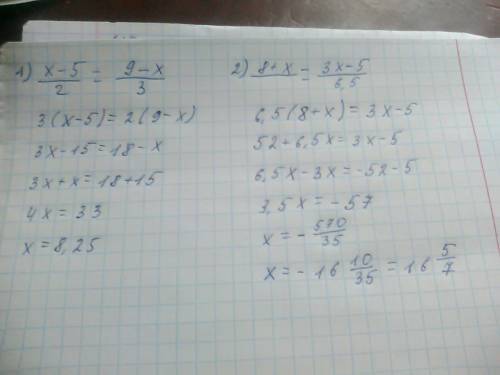 1) (x-5)/2 = (9-x)/3
3(x-5)=2(9-x)
3x-15=18-x
3x+x=18+15
4x=33
x=8,25
2) 8+x = (3x-5)/6,5
6,5(8+x)=3x-5
52+6,5x=3x-5
6,5x-3x=-52-5
3,5x=-57
x=-570/35
x=-16 10/35=16 5/7